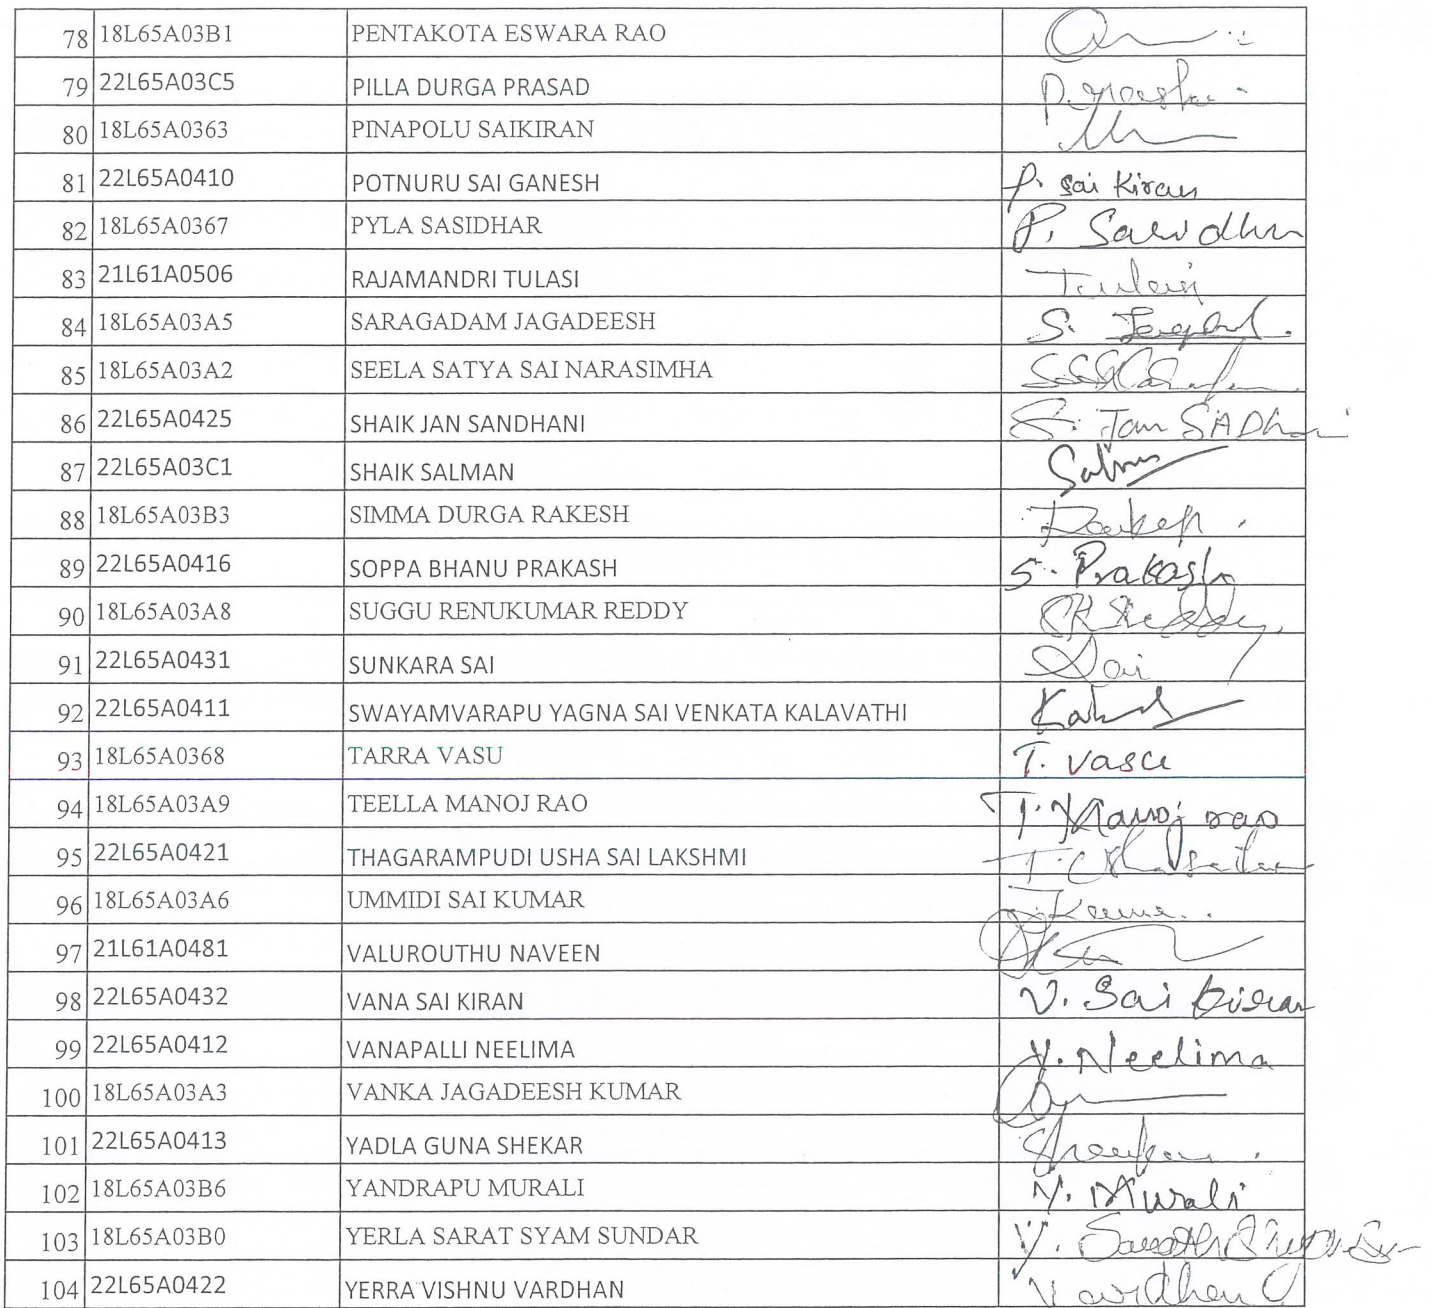 78 18L65A03B1 PENTAKOTA ESWARA RAO
79 22L65A03C5 PILLA DURGA PRASAD
80 18L65A0363 PINAPOLU SAIKIRAN
81 22L65A0410 POTNURU SAI GANESH P. Sai Kiran
82 18L65A0367 PYLA SASIDHAR P.
83 21L61A0506 RAJAMANDRI TULASI
84 18L65A03A5 SARAGADAM JAGADEESH S.
85 18L65A03A2 SEELA SATYA SAI NARASIMHA
86 22L65A0425 SHAIK JAN SANDHANI S. Jan
87 22L65A03C1 SHAIK SALMAN
88 18L65A03B3 SIMMA DURGA RAKESH
89 22L65A0416 SOPPA BHANU PRAKASH S. Prakash
90 18L65A03A8 SUGGU RENUKUMAR REDDY
91 22L65A0431 SUNKARA SAI Sai
92 22L65A0411 SWAYAMVARAPU YAGNA SAI VENKATA KALAVATHI
93 18L65A0368 TARRA VASU T. Vasu
94 18L65A03A9 TEELLA MANOJ RAO T. Manoj rao
95 22L65A0421 THAGARAMPUDI USHA SAI LAKSHMI
96 18L65A03A6 UMMIDI SAI KUMAR
97 21L61A0481 VALUROUTHU NAVEEN
98 22L65A0432 VANA SAI KIRAN V. Sai kiran
99 22L65A0412 VANAPALLI NEELIMA V. Neelima
100 18L65A03A3 VANKA JAGADEESH KUMAR
101 22L65A0413 YADLA GUNA SHEKAR
102 18L65A03B6 YANDRAPU MURALI Y. Murali
103 18L65A03B0 YERLA SARAT SYAM SUNDAR Y.
104 22L65A0422 YERRA VISHNU VARDHAN Vardhan